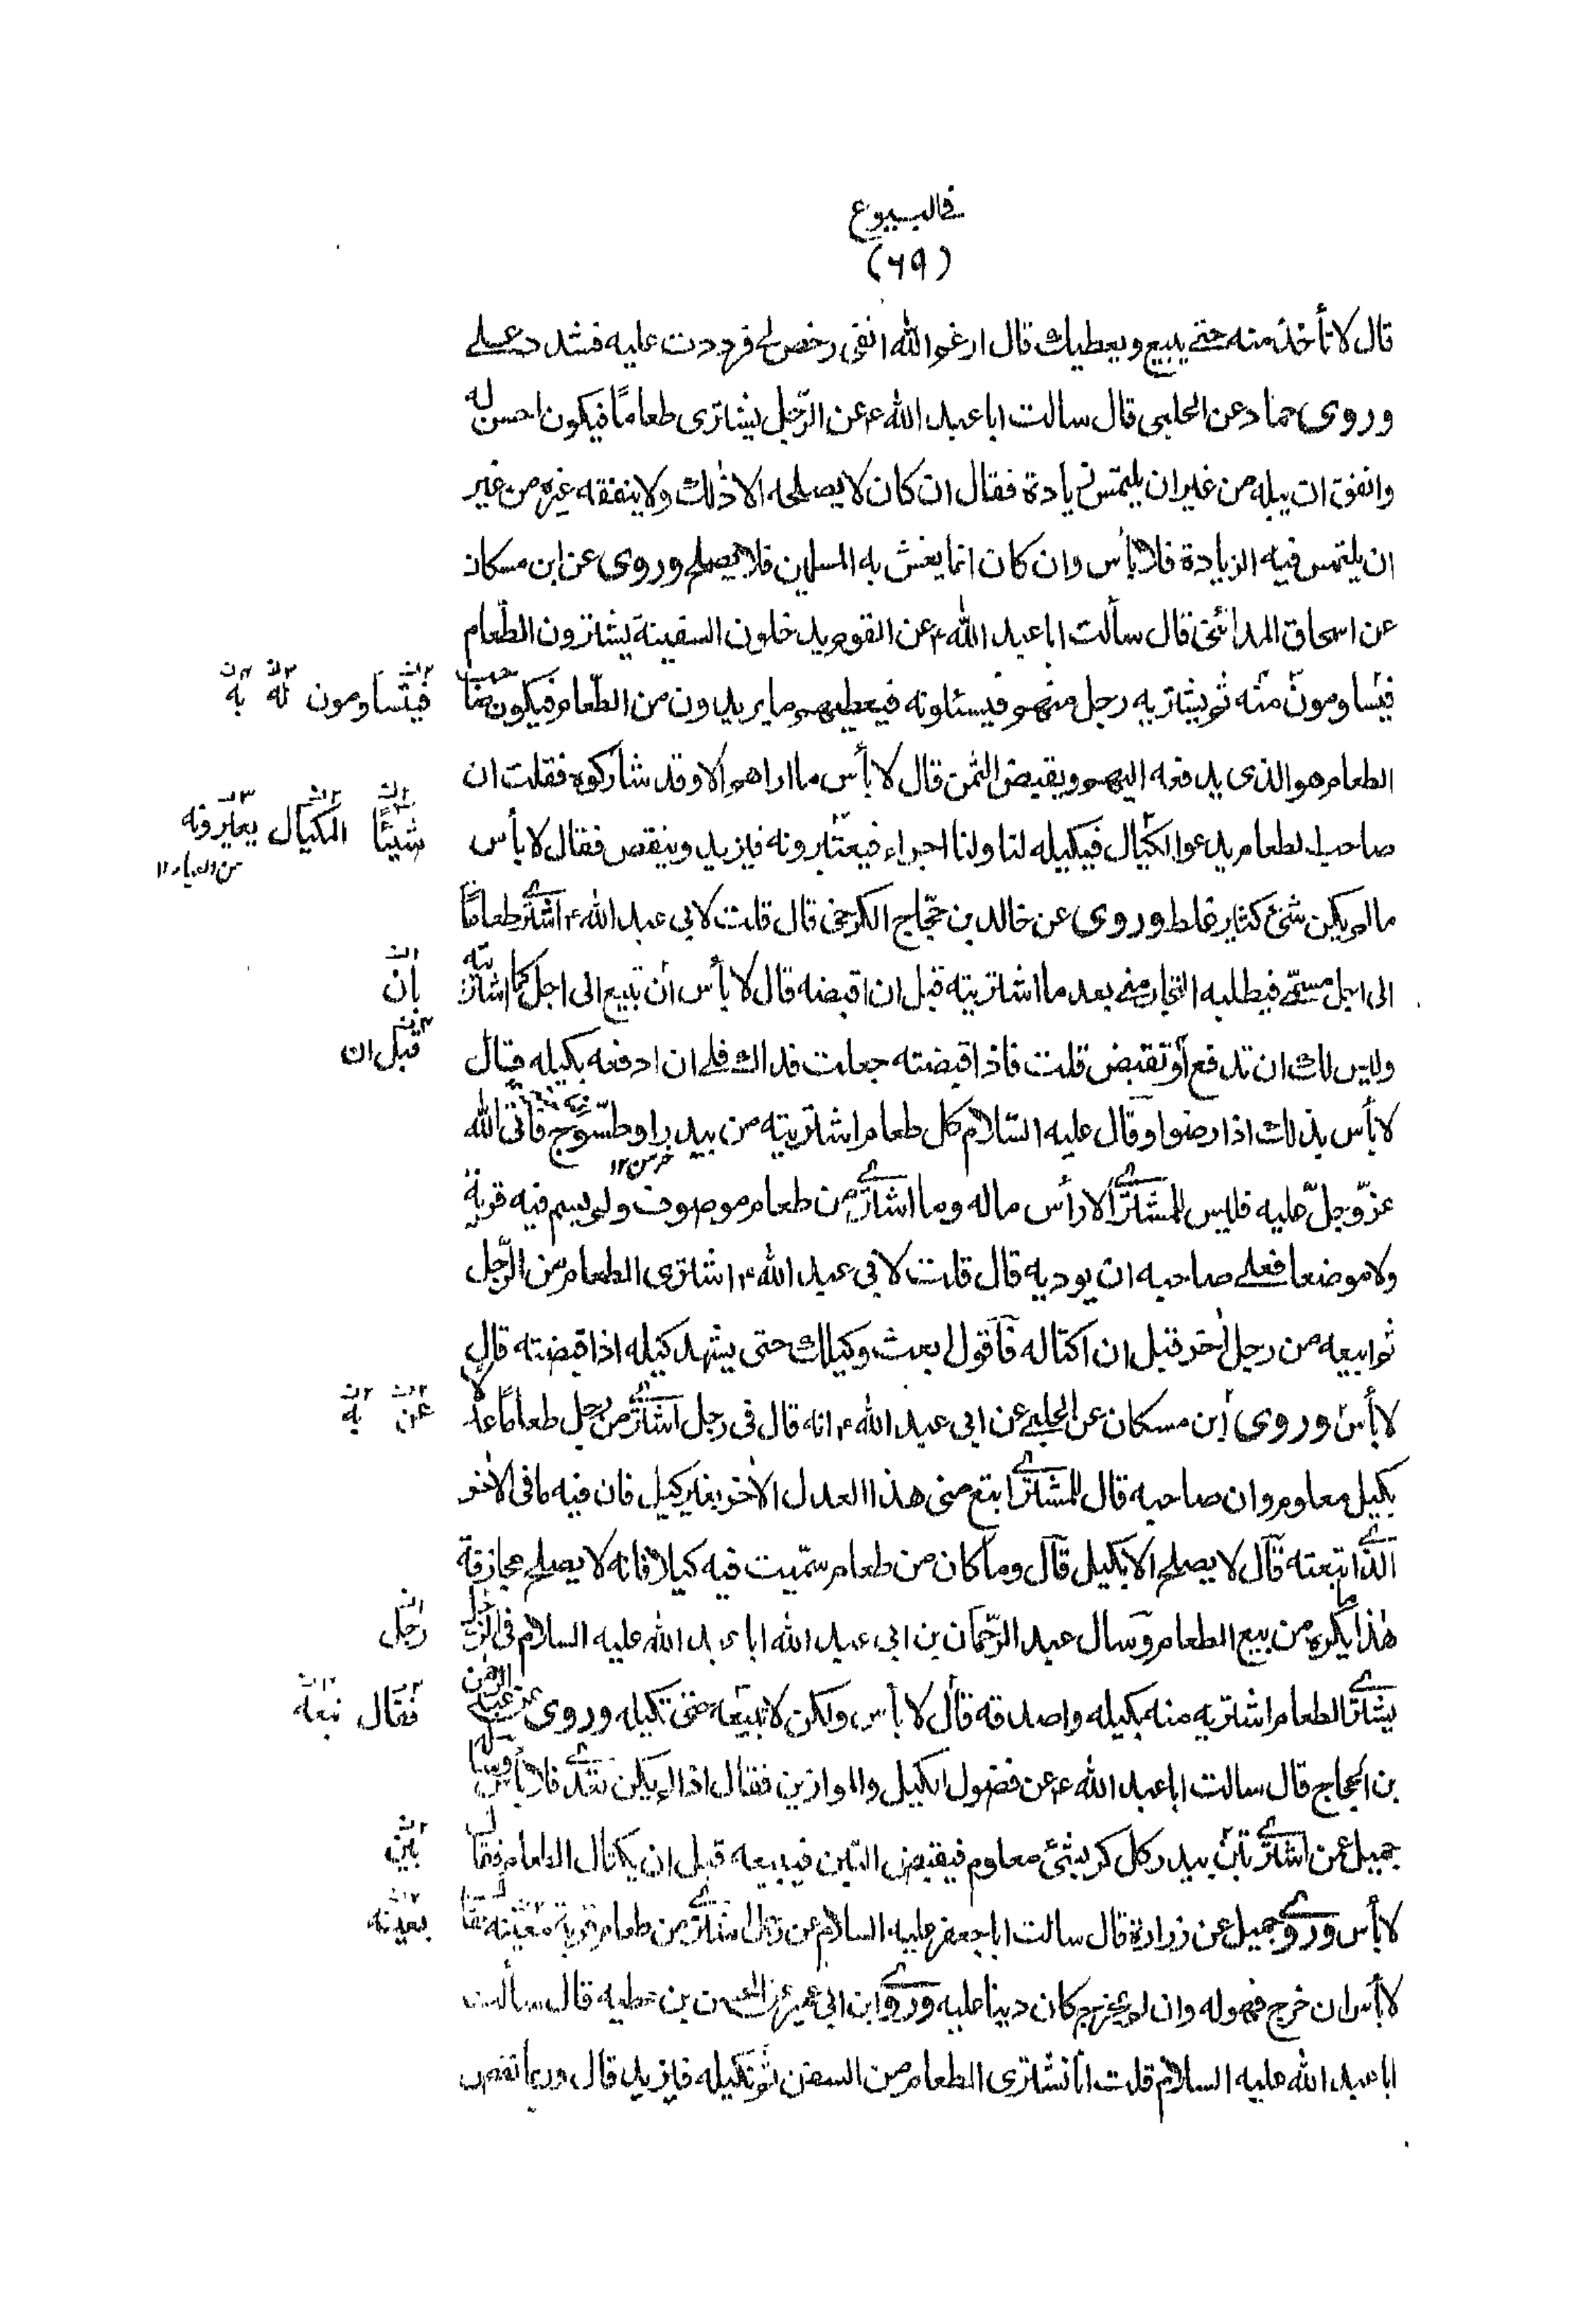 فى البيوع
(٦٩)
قال لا تأخذ منه حتى يبيع ويعطيك قال ارغم الله انفى رخص لى فرددت عليه فشدد على
وروى حماد عن الحلبى قال سالت ابا عبد الله ع عن الرّجل يشترى طعامًا فيكون احسن له
وانفق ان يبله من غير ان يلتمس زيادة فقال ان كان لا يصلحه الا ذلك ولا ينفقه غيره من غير
ان يلتمس فيه الزيادة فلا بأس وان كان انما يغش به المسلمين فلا يصلح وروى عن ابن مسكان
عن اسحاق المدائنى قال سألت ابا عبد الله ع عن القوم يدخلون السفينة يشترون الطّعام
فيتساومون منه ثم يشتريه رجل منهم فيسئلونه فيعطيهم ما يريدون من الطّعام فيكون صاحب
فيتساومون له به
الطعام هو الذى يدفعه اليهم ويقبض الثمن قال لا بأس ما اراهم الا وقد شاركوه فقلت ان
صاحب الطعام يدعو الكيّال فيكيله لنا ولنا اجراء فيعتبرونه فيزيد وينقص فقال لا بأس
شيئًا المكيال يعايرونه
من العيار ١٢
مالم يكن شئ كثير غلط وروى عن خالد بن حجّاج الكرخى قال قلت لابى عبد الله ع اشترى طعامًا
الى اجل مسمّى فيطلبه التجار منى بعد ما اشتريته قبل ان اقبضه قال لا بأس ان تبيع الى اجل كما اشتريته
بان
وليس لك ان تدفع او تقبض قلت فاذا قبضته جعلت فداك فلى ان ادفعه بكيله فقال
قبل ان
لا بأس بذلك اذا رضوا وقال عليه السّلام كل طعام اشتريته من بيدر او طسّوج فاتى الله
خرمن ١٢
عزّ وجلّ عليه فليس للمشترى الا رأس ماله وما اشترى من طعام موصوف ولم يسم فيه قرية
ولا موضعا فعلى صاحبه ان يوديه قال قلت لابى عبد الله ع اشترى الطعام من الرّجل
ثم ابيعه من رجل آخر قبل ان اكتاله فأقول ابعث وكيلك حتى يشهد كيله اذا قبضته قال
لا بأس وروى ابن مسكان عن الحلبى عن ابى عبد الله ع انه قال فى رجل اشترى من رجل طعامًا عدلا
عن به
بكيل معلوم وان صاحبه قال للمشترى ابتع منى هذا العدل الآخر بغير كيل فان فيه ما فى الآخر
الذى ابتعته قال لا يصلح الا بكيل قال وما كان من طعام سمّيت فيه كيلا فانه لا يصلح مجازفة
هذا ما يكره من بيع الطعام وسال عبد الرّحمان بن ابى عبد الله ابا عبد الله عليه السلام فى الرّجل
رجل
يشترى الطعام اشتريه منه بكيله واصدقه قال لا بأس ولكن لا تبيعه حتى تكيله وروى عن عبد الرحمن
فقال تبعه
بن الحجاج قال سالت ابا عبد الله ع عن فضول الكيل والموازين فقال اذا لم يكن تعدّى فلا بأس وسأل
جميل عن اشترى تبن بيدر كل كر بشئ معلوم فيقبض التّبن فيبيعه قبل ان يكتال الطعام فقال
تبن
لا بأس وروى جميل عن زرارة قال سالت ابا جعفر عليه السلام عن رجل اشترى من طعام قرية معيّنة فقال
بعينه
لا بأس ان خرج فهو له وان لم يخرج كان دينا عليه وروى ابن ابى عمير عن الحسن بن عطيه قال سألت
ابا عبد الله عليه السلام قلت انا نشترى الطعام من السفن ثم نكيله فيزيد قال وربما نقص